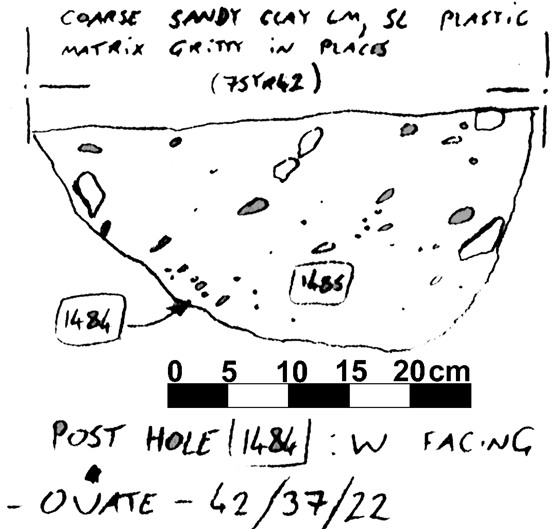 COARSE SANDY CLAY LM, SL PLASTIC
MATRIX GRITTY IN PLACES
(75YR42)
1485
1484
0 5 10 15 20cm
POST HOLE [1484] : W FACING
- OVATE - 42/37/22